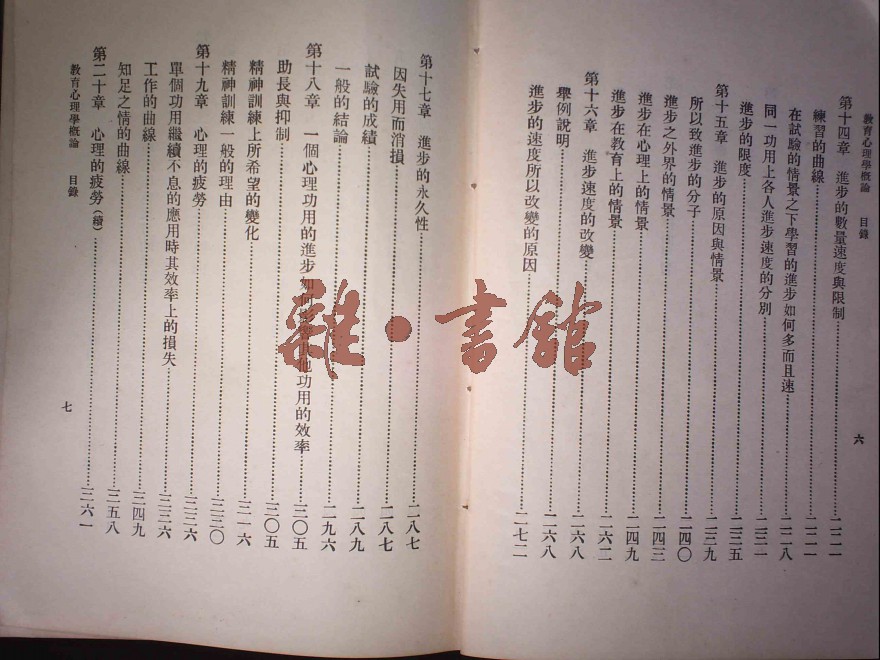 教育心理學概論 目錄
第十四章 進步的數量速度與限制……二二一
練習的曲線……二二一
在試驗的情景之下學習的進步如何多而且速……二二八
同一功用上各人進步速度的分別……二三一
進步的限度……二三五
第十五章 進步的原因與情景……二三九
所以致進步的分子……二四〇
進步之外界的情景……二四三
進步在心理上的情景……二四九
進步在教育上的情景……二六二
第十六章 進步速度的改變……二六八
舉例說明……二六八
進步的速度所以改變的原因……二七二
六
第十七章 進步的永久性……二八七
因失用而消損……二八七
試驗的成績……二八九
一般的結論……二九六
第十八章 一個心理功用的進步如何 他功用的效率……三〇五
助長與抑制……三〇五
精神訓練上所希望的變化……三一六
精神訓練一般的理由……三三〇
第十九章 心理的疲勞……三三六
單個功用繼續不息的應用時其效率上的損失……三三六
工作的曲線……三四九
知足之情的曲線……三五八
第二十章 心理的疲勞(續)……三六一
教育心理學概論 目錄
七
雜·書館